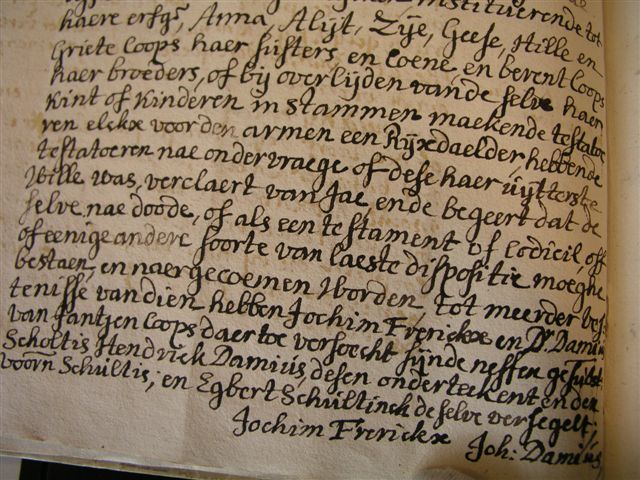 instituerende tot
haere erfgs, Anna, Alijt, Zije, Geese, Hille en
Griete Coops haer susters, en Coene, en berent Coops
haer broeders, of bij overlijden vande selve haer
Kint of Kinderen in stammen maekende testato
ren elckx voor den armen een Rijxdaelder, hebbende
testatoeren nae ondervraege of dese haer uijtterste
Wille was, verclaert van Jae ende begeert dat de
selve nae doode, of als een testament of Codicil, off
of eenige andere soorte van laeste dispositie moeghe
bestaen, en naergecoemen worden, tot meerder vers
tenisse van dien hebben Jochim Frerickx en Dr. Damius
van Jantjen Coops daertoe versocht sijnde neffen
Scholtis Hendrick Damius, desen onderteekent en den
voorn Schultis, en Egbert Schultinck deselve versegelt;
Jochim Frerickx Joh: Damius,